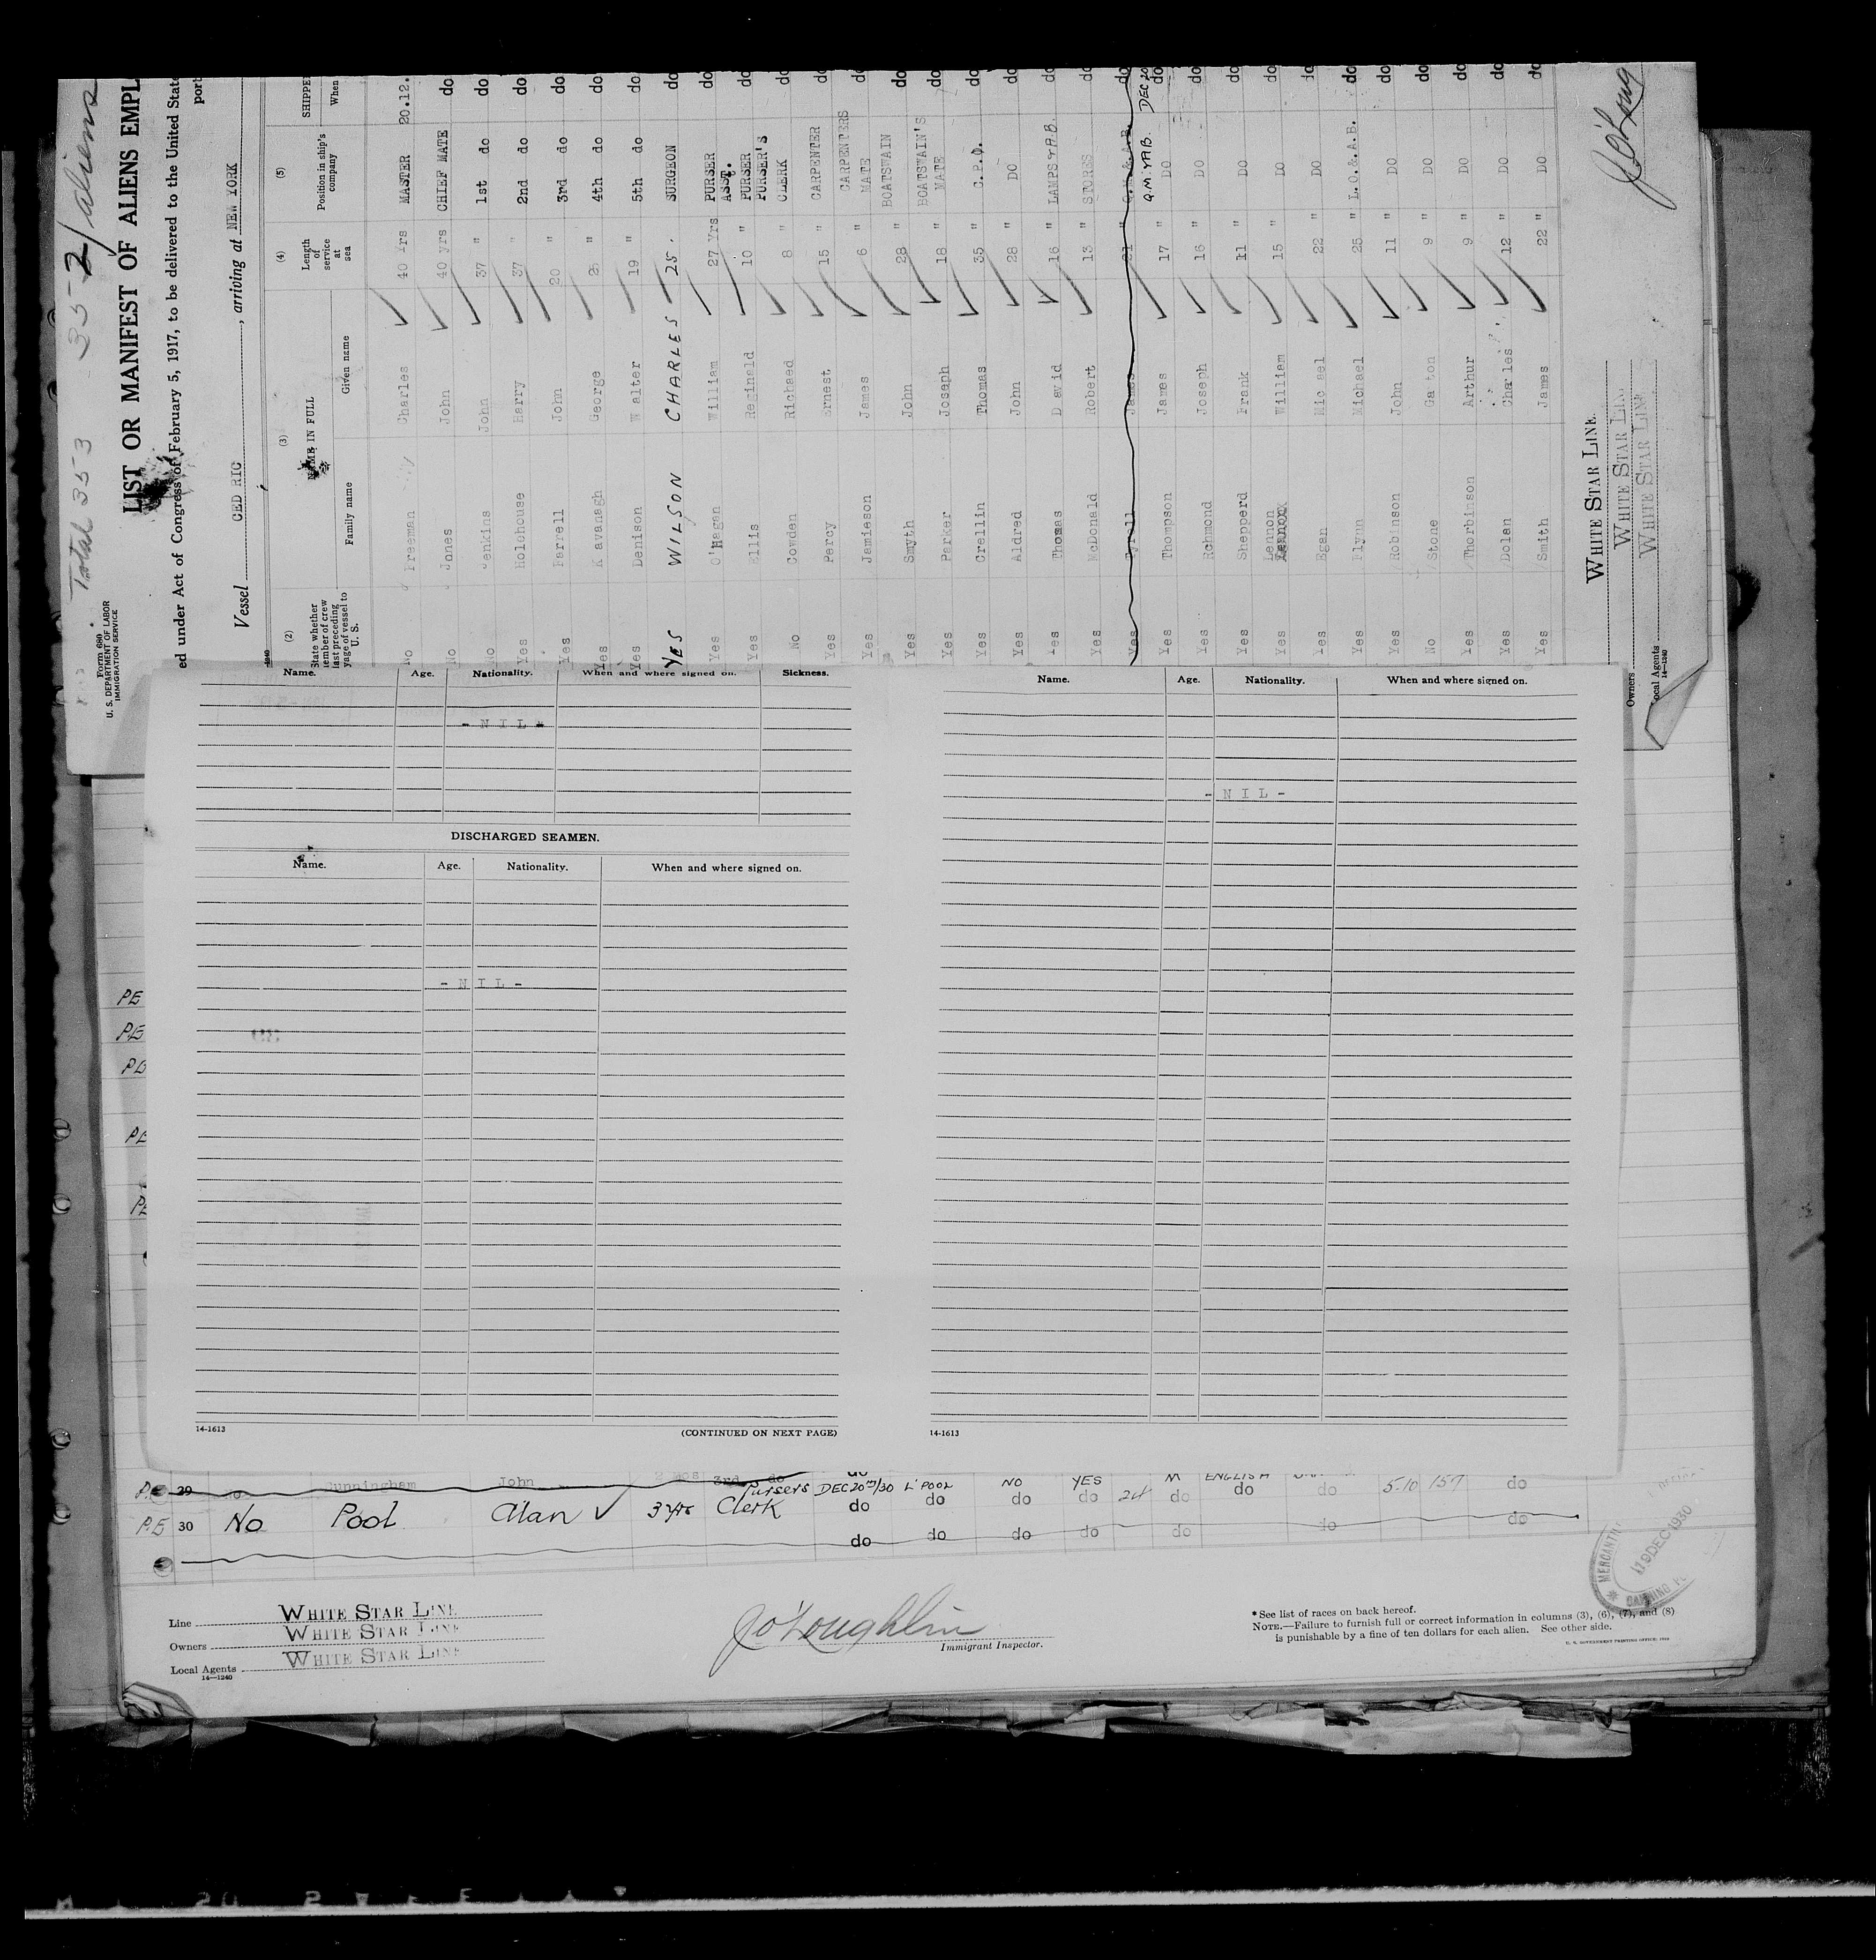 Total 353 - 352/aliens
Form 680
U. S. DEPARTMENT OF LABOR
IMMIGRATION SERVICE
LIST OR MANIFEST OF ALIENS EMPL
ed under Act of Congress of February 5, 1917, to be delivered to the United State
port
Vessel CEDRIC, arriving at NEW YORK
(2) (3) (4) (5)
State whether member of crew last preceding voyage of vessel to U. S.
NAME IN FULL
Family name Given name
Length of service at sea
Position in ship's company
SHIPPED
When
No Freeman Charles 40 yrs MASTER 20.12.
No Jones John 40 yrs CHIEF MATE do
No Jenkins John 37 " 1st do do
Yes Holehouse Harry 37 " 2nd do do
Yes Farrell John 20 " 3rd do do
Yes Kavanagh George 25 " 4th do do
Yes Denison Walter 19 " 5th do do
YES WILSON CHARLES 25 SURGEON do
Yes O'Hagan William 27 Yrs PURSER do
Yes Ellis Reginald 10 " ASST. PURSER do
No Cowden Richaed 8 " PURSER'S CLERK do
Yes Percy Ernest 15 " CARPENTER do
Yes Jamieson James 6 " CARPENTERS MATE do
Yes Smyth John 28 " BOATSWAIN do
Yes Parker Joseph 18 " BOATSWAIN'S MATE do
Yes Crellin Thomas 35 " C.P.O. do
Yes Aldred John 28 " DO do
Yes Thomas David 16 " LAMPS & A.B. do
Yes McDonald Robert 13 " STORES do
Yes Tyrell James 21 " Q.M. & A.B. do
Yes Thompson James 17 " DO do
Q.M. & A.B. DEC 20
Yes Rchmond Joseph 16 " DO do
Yes Shepperd Frank 11 " DO do
Yes Lennon William 15 " DO do
Yes Egan Mic ael 22 " DO do
Yes Flynn Michael 25 " L.O.&.A.B. do
Yes Robinson John 11 " DO do
No Stone Ga ton 9 " DO do
Yes Thorbinson Arthur 9 " DO do
Yes Dolan Charles 12 " DO do
Yes Smith James 22 " DO do
WHITE STAR LINE
WHITE STAR LINE
WHITE STAR LINE
Owners
Local Agents
14-1240
J O'Loug
Name. Age. Nationality. When and where signed on. Sickness.
- N I L -
DISCHARGED SEAMEN.
Name. Age. Nationality. When and where signed on.
- N I L -
14-1613 (CONTINUED ON NEXT PAGE)
Name. Age. Nationality. When and where signed on.
- N I L -
14-1613
PE
PE
PE
PE
PE
PE 29 No Cunningham John 2 mos 3rd do do
DEC 20TH/30 L'POOL NO YES M ENGLISH 5.10 157 do
PE 30 No Pool Alan 3 yrs Pursers Clerk do do do do 24 do do do
do do do do do do do
MERCANTILE
19 DEC 1930
CANNING PL
Line WHITE STAR LINE
Owners WHITE STAR LINE
Local Agents WHITE STAR LINE
14-1240
J O'Loughlin
Immigrant Inspector.
* See list of races on back hereof.
NOTE.—Failure to furnish full or correct information in columns (3), (6), (7), and (8)
is punishable by a fine of ten dollars for each alien. See other side.
U. S. GOVERNMENT PRINTING OFFICE